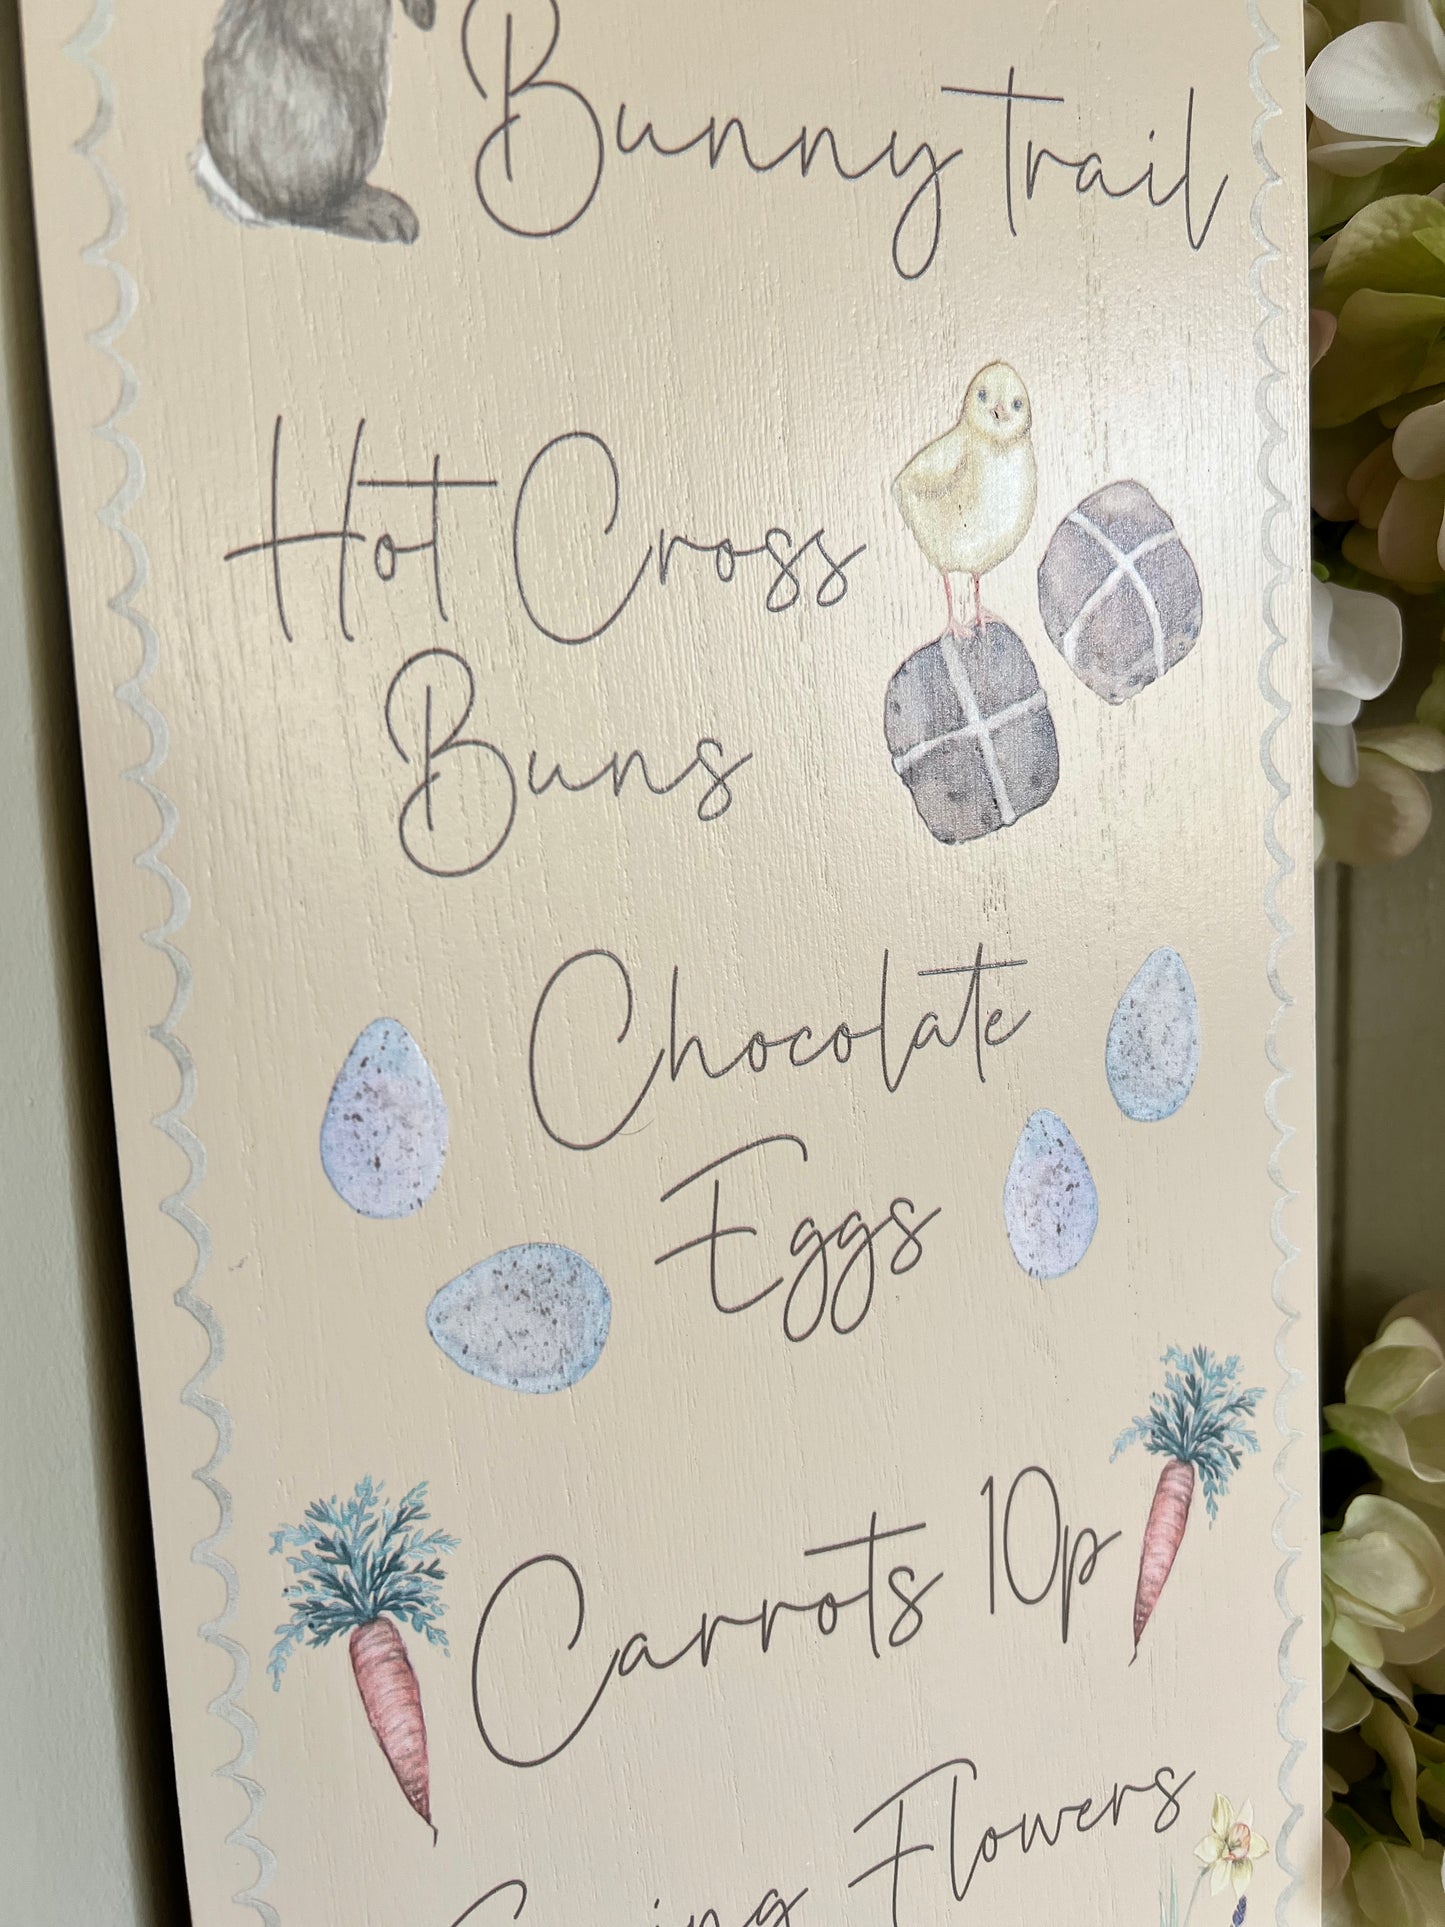 Bunny trail
Hot Cross
Buns
Chocolate
Eggs
Carrots 10p
Spring Flowers